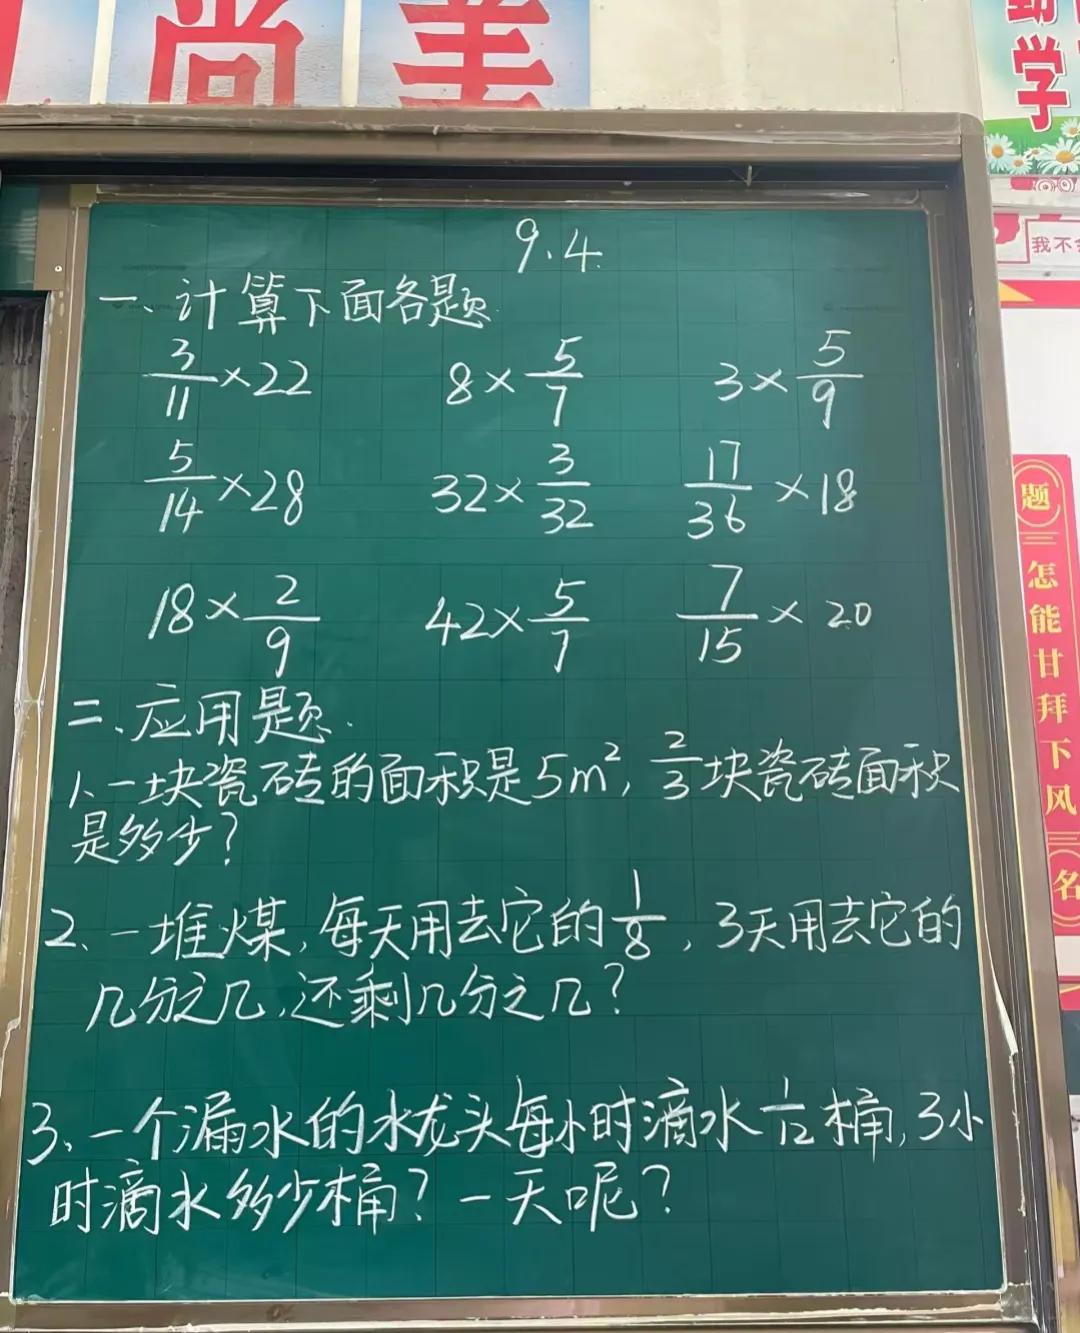 尚 美
勤
学
我不
9.4.
一、计算下面各题
3/11×22 8×5/7 3×5/9
5/14×28 32×3/32 17/36×18
18×2/9 42×5/7 7/15×20
二、应用题.
1、一块瓷砖的面积是5m²,2/3块瓷砖面积
是多少?
2、一堆煤,每天用去它的1/8,3天用去它的
几分之几,还剩几分之几?
3、一个漏水的水龙头每小时滴水1/12桶,3小
时滴水多少桶?一天呢?
题
怎能甘拜下风
名